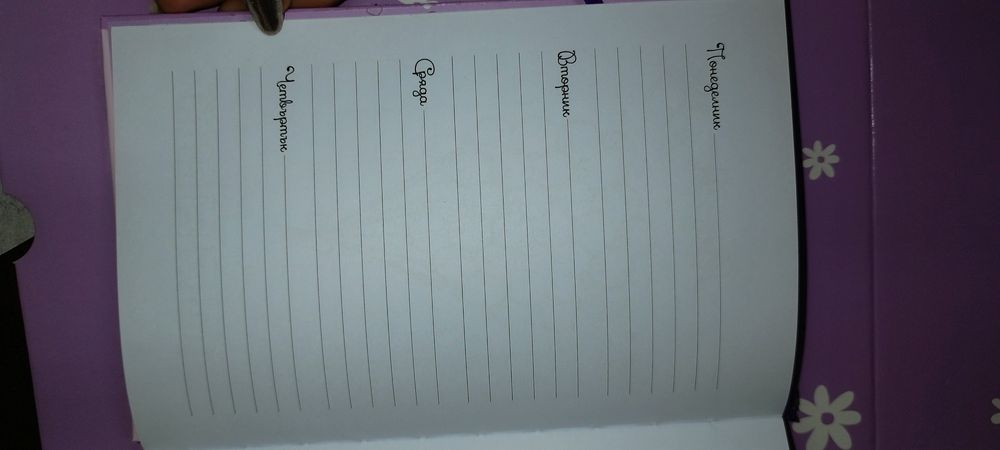 Понеделник
Вторник
Сряда
Четвъртък